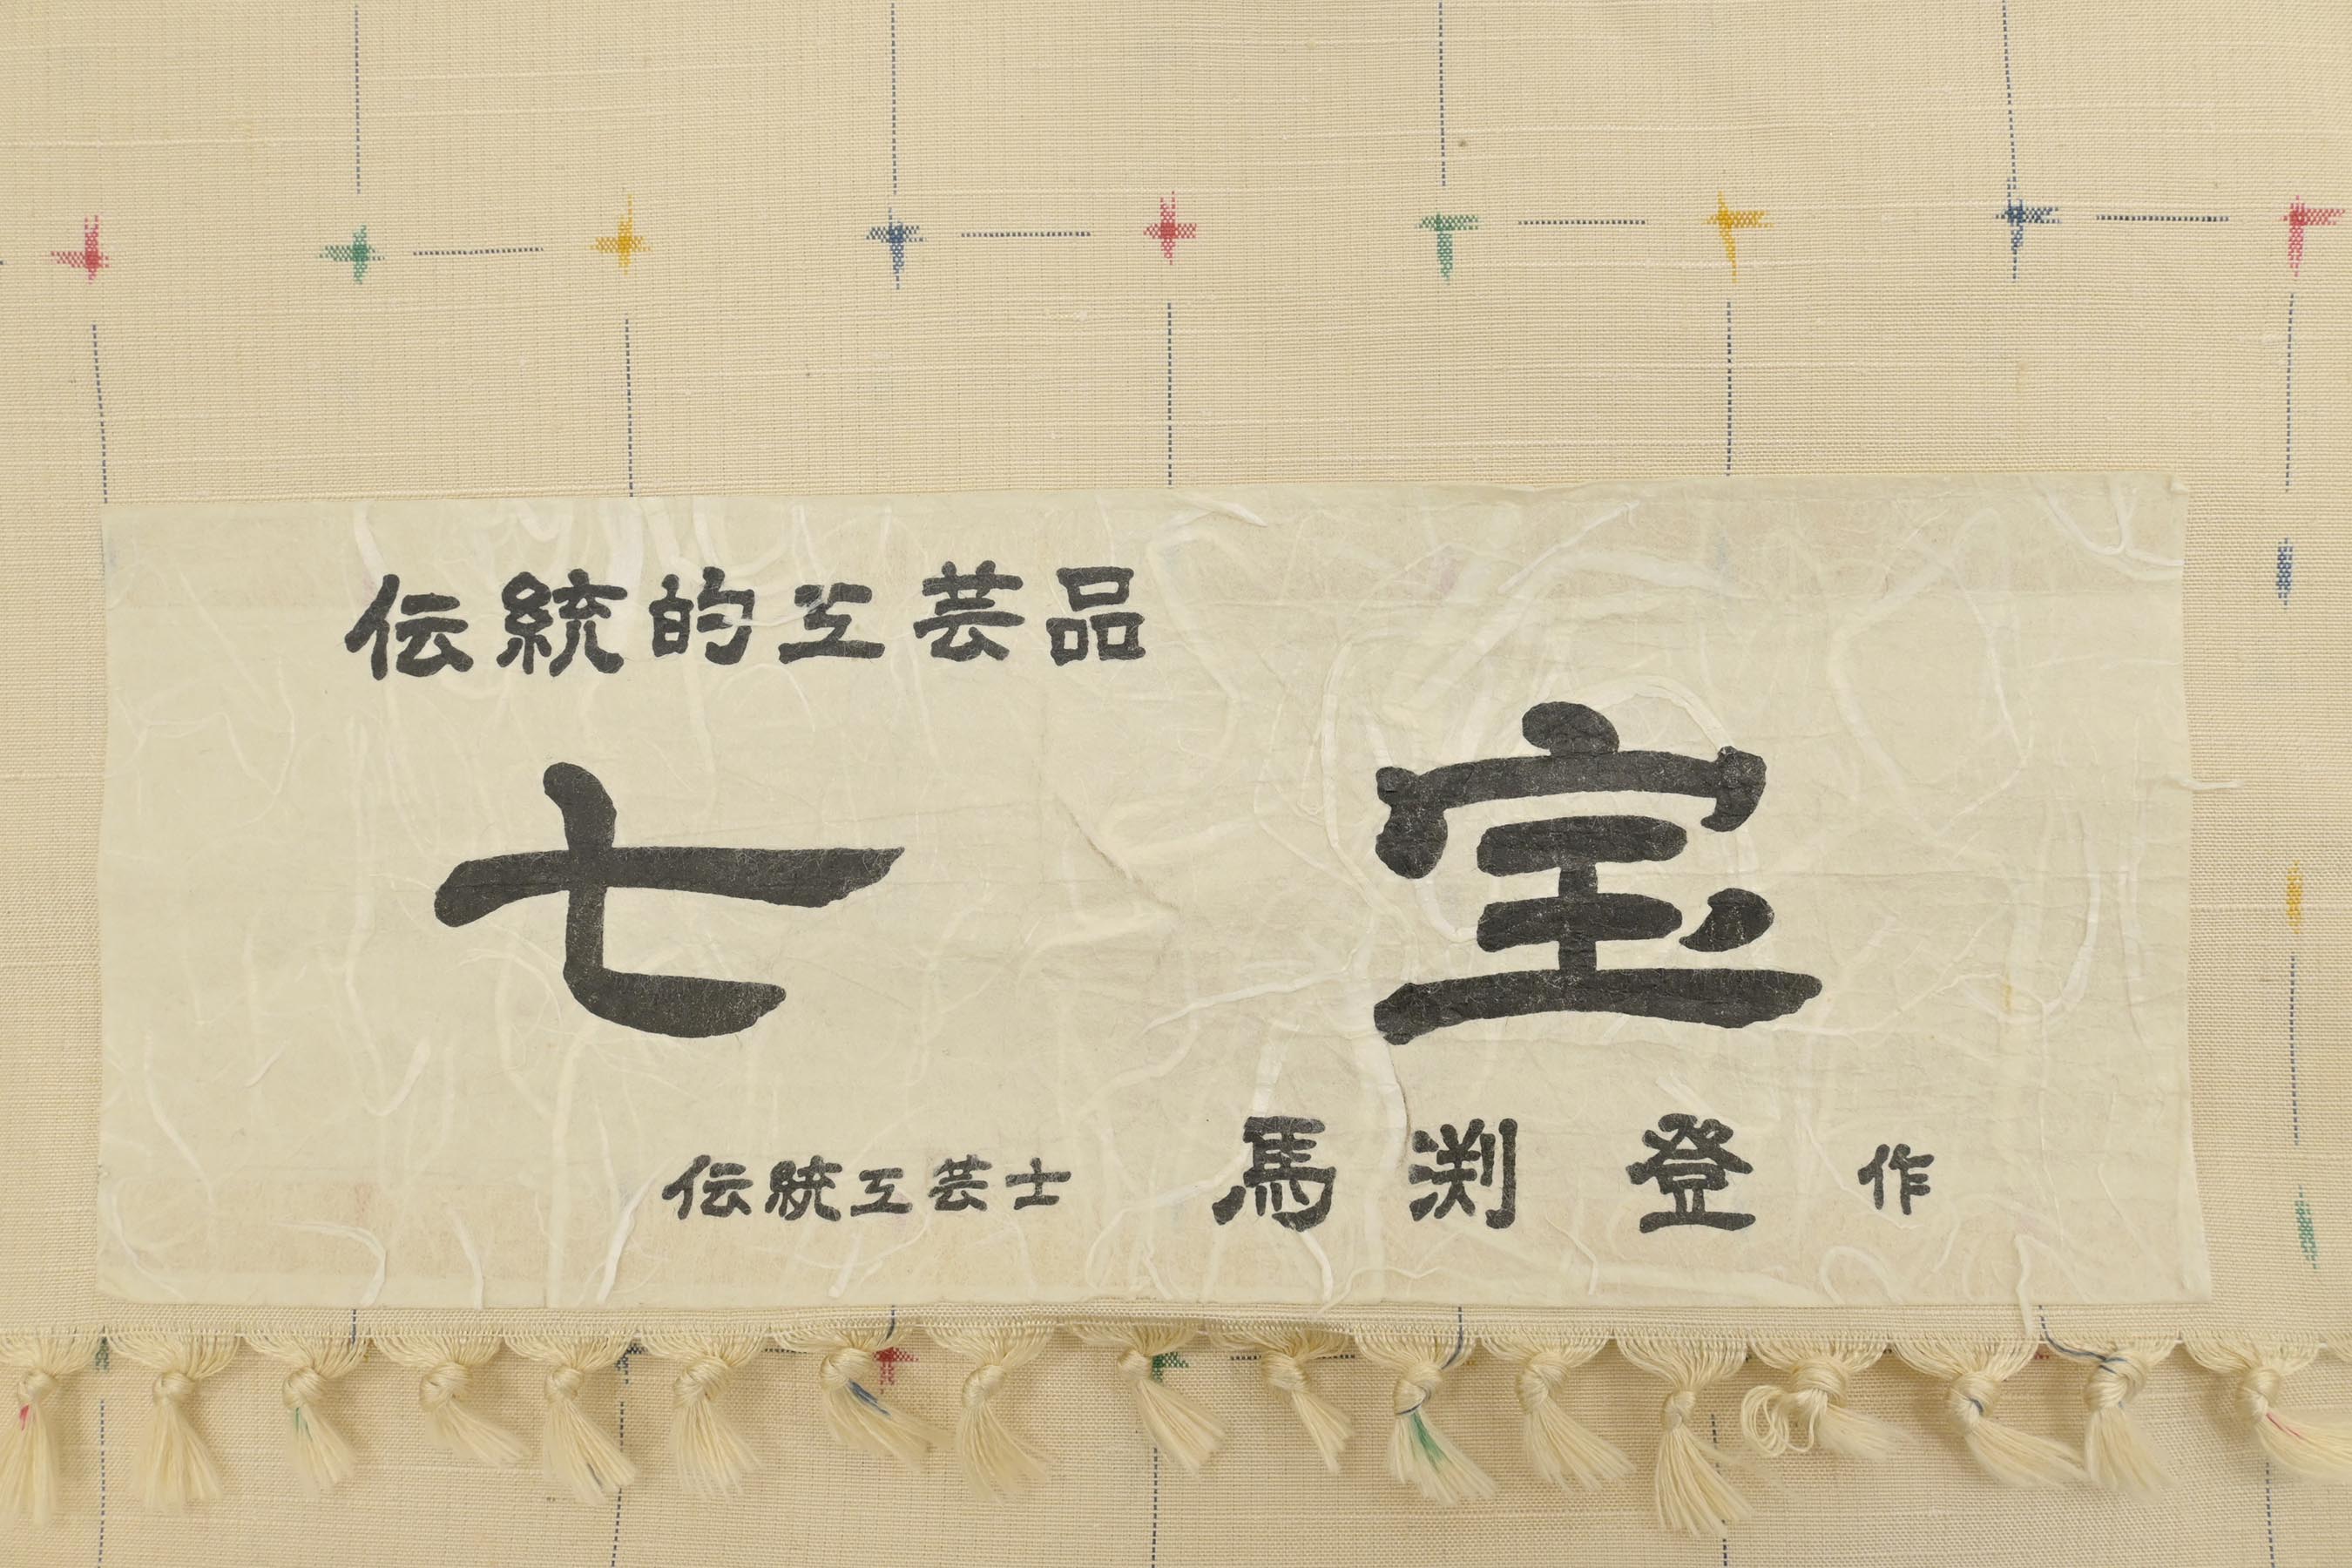 伝統的工芸品
七宝
伝統工芸士 馬渕 登 作